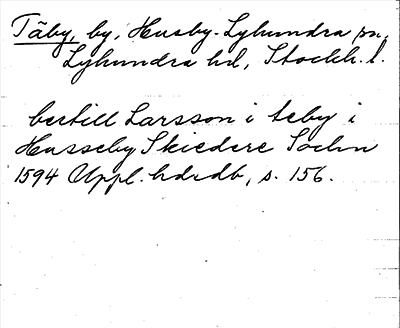 Täby, by, Husby-Lyhundra sn,
Lyhundra hd, Stockh. l.
bertill Larsson i teby i
Husseby Skiedere Sochn
1594 Uppl. hdrdb, s. 156.